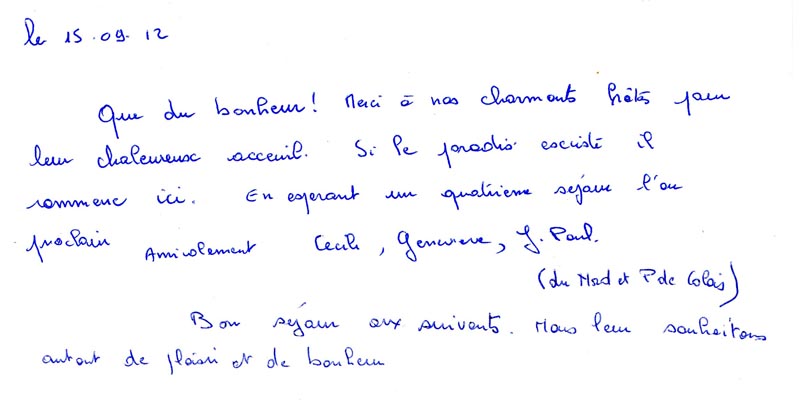 le 15.09.12
Que du bonheur! Merci à nos charmants hôtes pour
leur chaleureux acceuil. Si le paradis exciste il
commence ici. En esperant un quatrieme sejour l'an
prochain Amicalement Cecile, Genevieve, J. Paul.
(du Nord et P de Calais)
Bon sejour aux suivants. Nous leur souhaitons
autant de plaisir et de bonheur